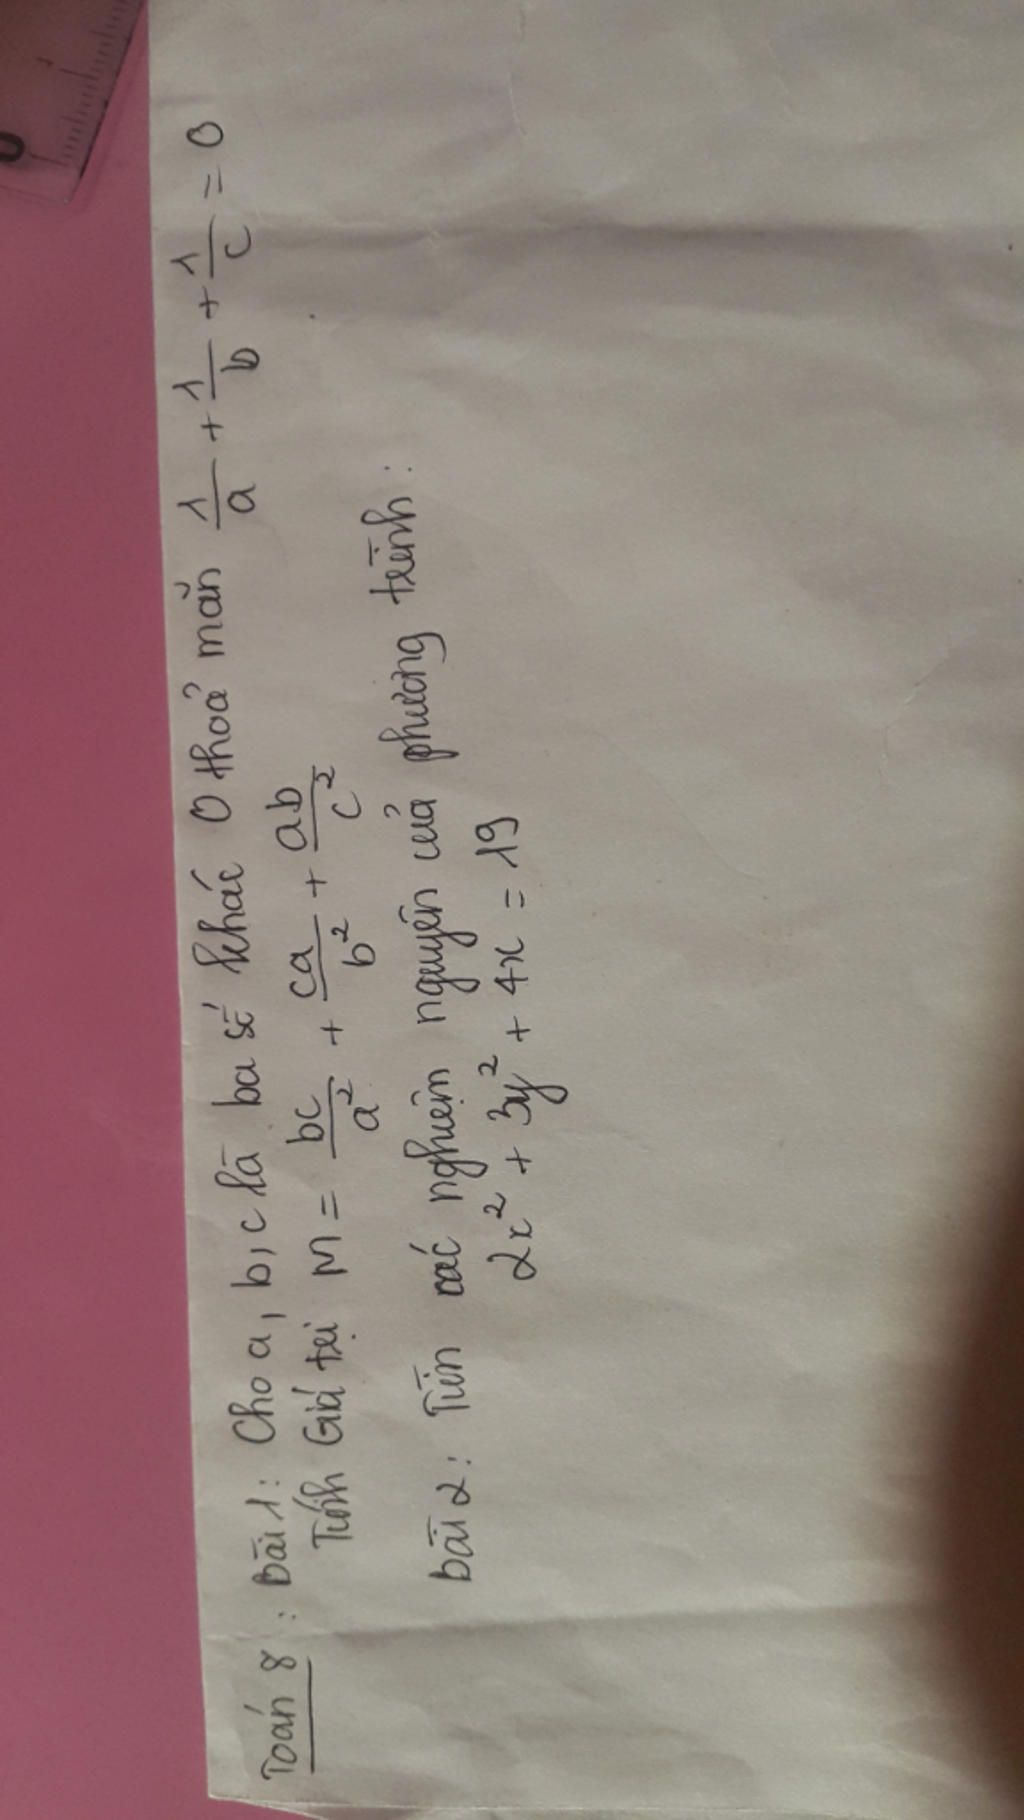 Toán 8 : Bài 1: Cho a, b, c là ba số khác 0 thoả mãn 1/a + 1/b + 1/c = 0
Tính Giá trị M = bc/a² + ca/b² + ab/c²
bài 2: Tìm các nghiệm nguyên của phương trình:
2x² + 3y² + 4x = 19
0